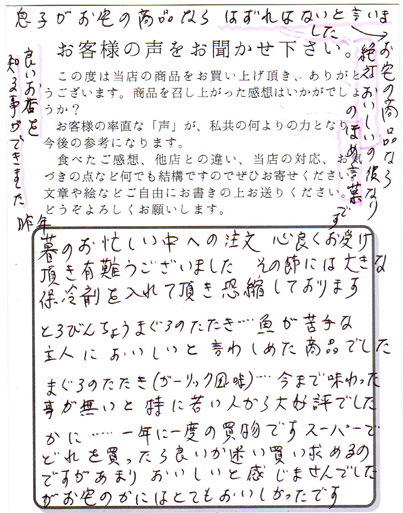 息子がお宅の商品なら はずれはないと言いま
した
お宅の商品なら
絶対おいしいの後なり
のほめ言葉
です
良いお店を
知る事ができました
お客様の声をお聞かせ下さい。
この度は当店の商品をお買い上げ頂き、ありがと
うございます。商品を召し上がった感想はいかがでしょ
うか?
お客様の率直な「声」が、私共の何よりの力となり、
今後の参考になります。
食べたご感想、他店との違い、当店の対応、お気
づきの点など何でも結構ですのでぜひお寄せください。
文章や絵などご自由にお書きの上お送りください。
どうぞよろしくお願いします。
昨年
暮のお忙しい中への注文 心良くお受け
頂き有難うございました その節には大きな
保冷剤を入れて頂き恐縮しております
とろびんちょうまぐろのたたき…魚が苦手な
主人においしいと言わしめた商品でした
まぐろのたたき(ガーリック風味)…今まで味わった
事が無いと特に若い人から大好評でした
かに……一年に一度の買物です スーパーで
どれを買ったら良いか迷い買い求めるの
ですがあまりおいしいと感じませんでした
がお宅のかにはとてもおいしかったです